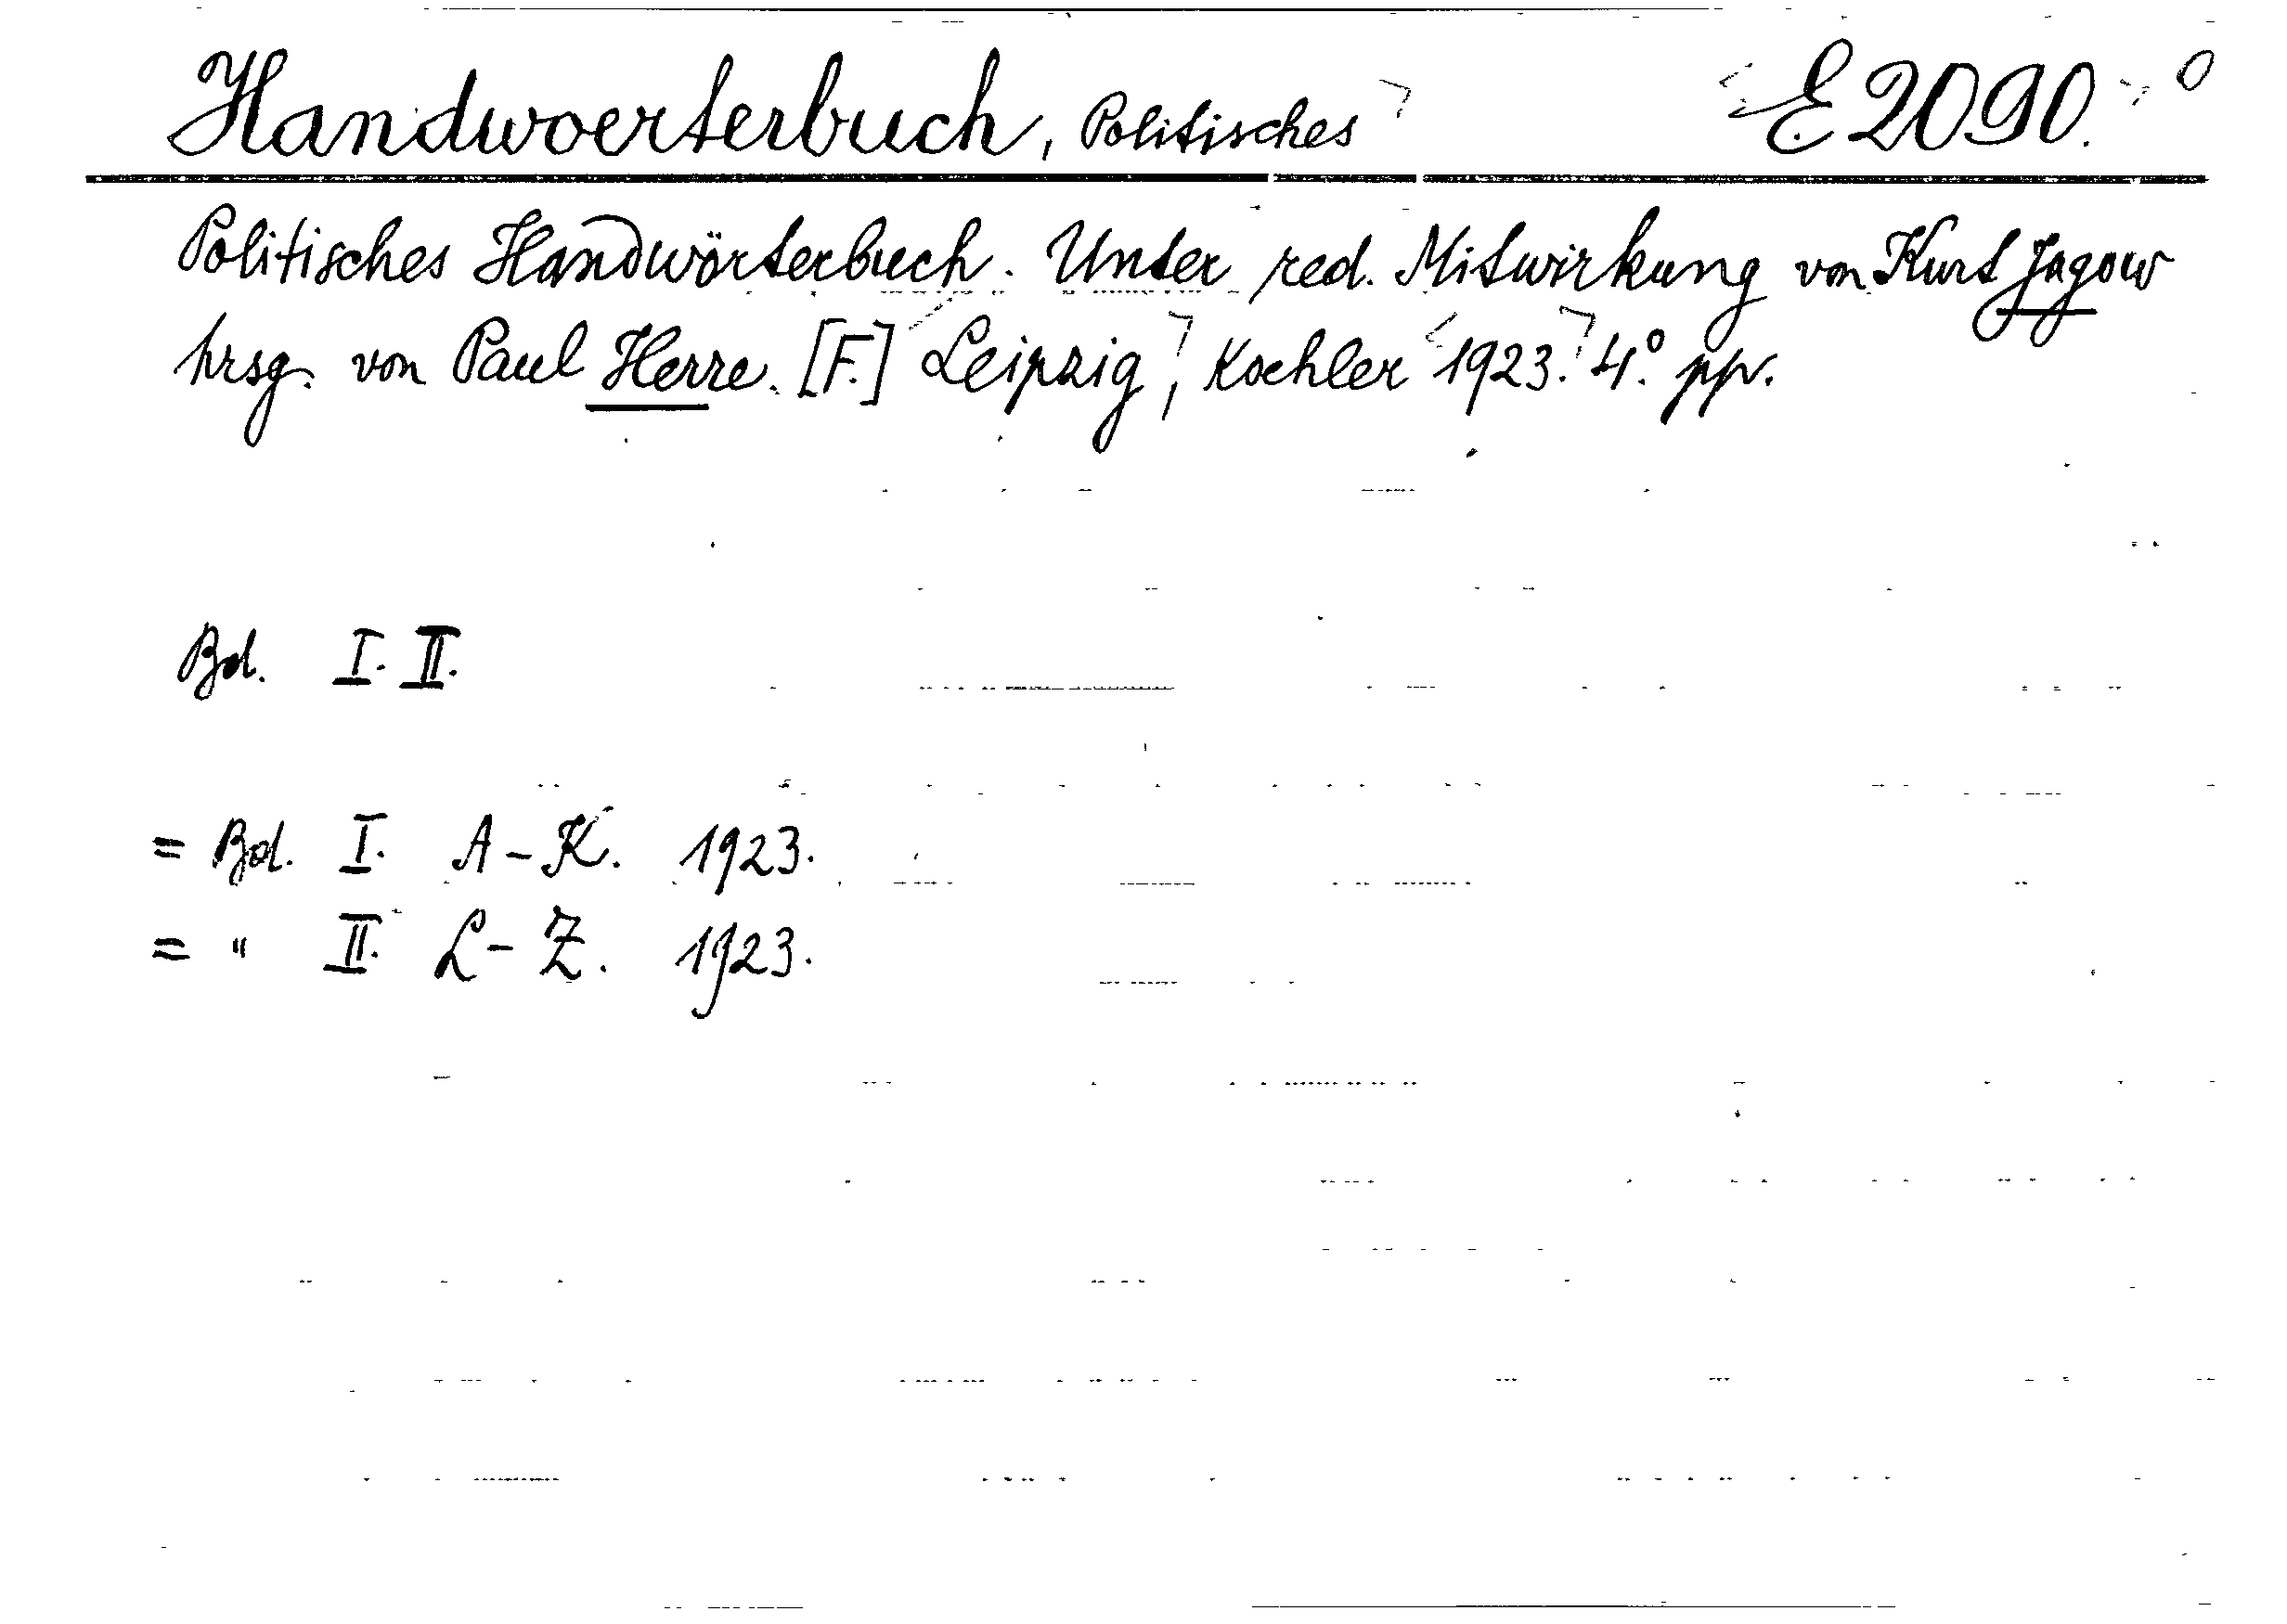 Handwoerterbuch, Politisches E 2090. 0
Politisches Handwörterbuch. Unter red. Mitwirkung von Kurt Jagow
hrsg. von Paul Herre. [F.] Leipzig, Koehler 1923. 4.° pp.
Bd. I. II.
= Bd. I. A-K. 1923.
= " II. L-Z. 1923.